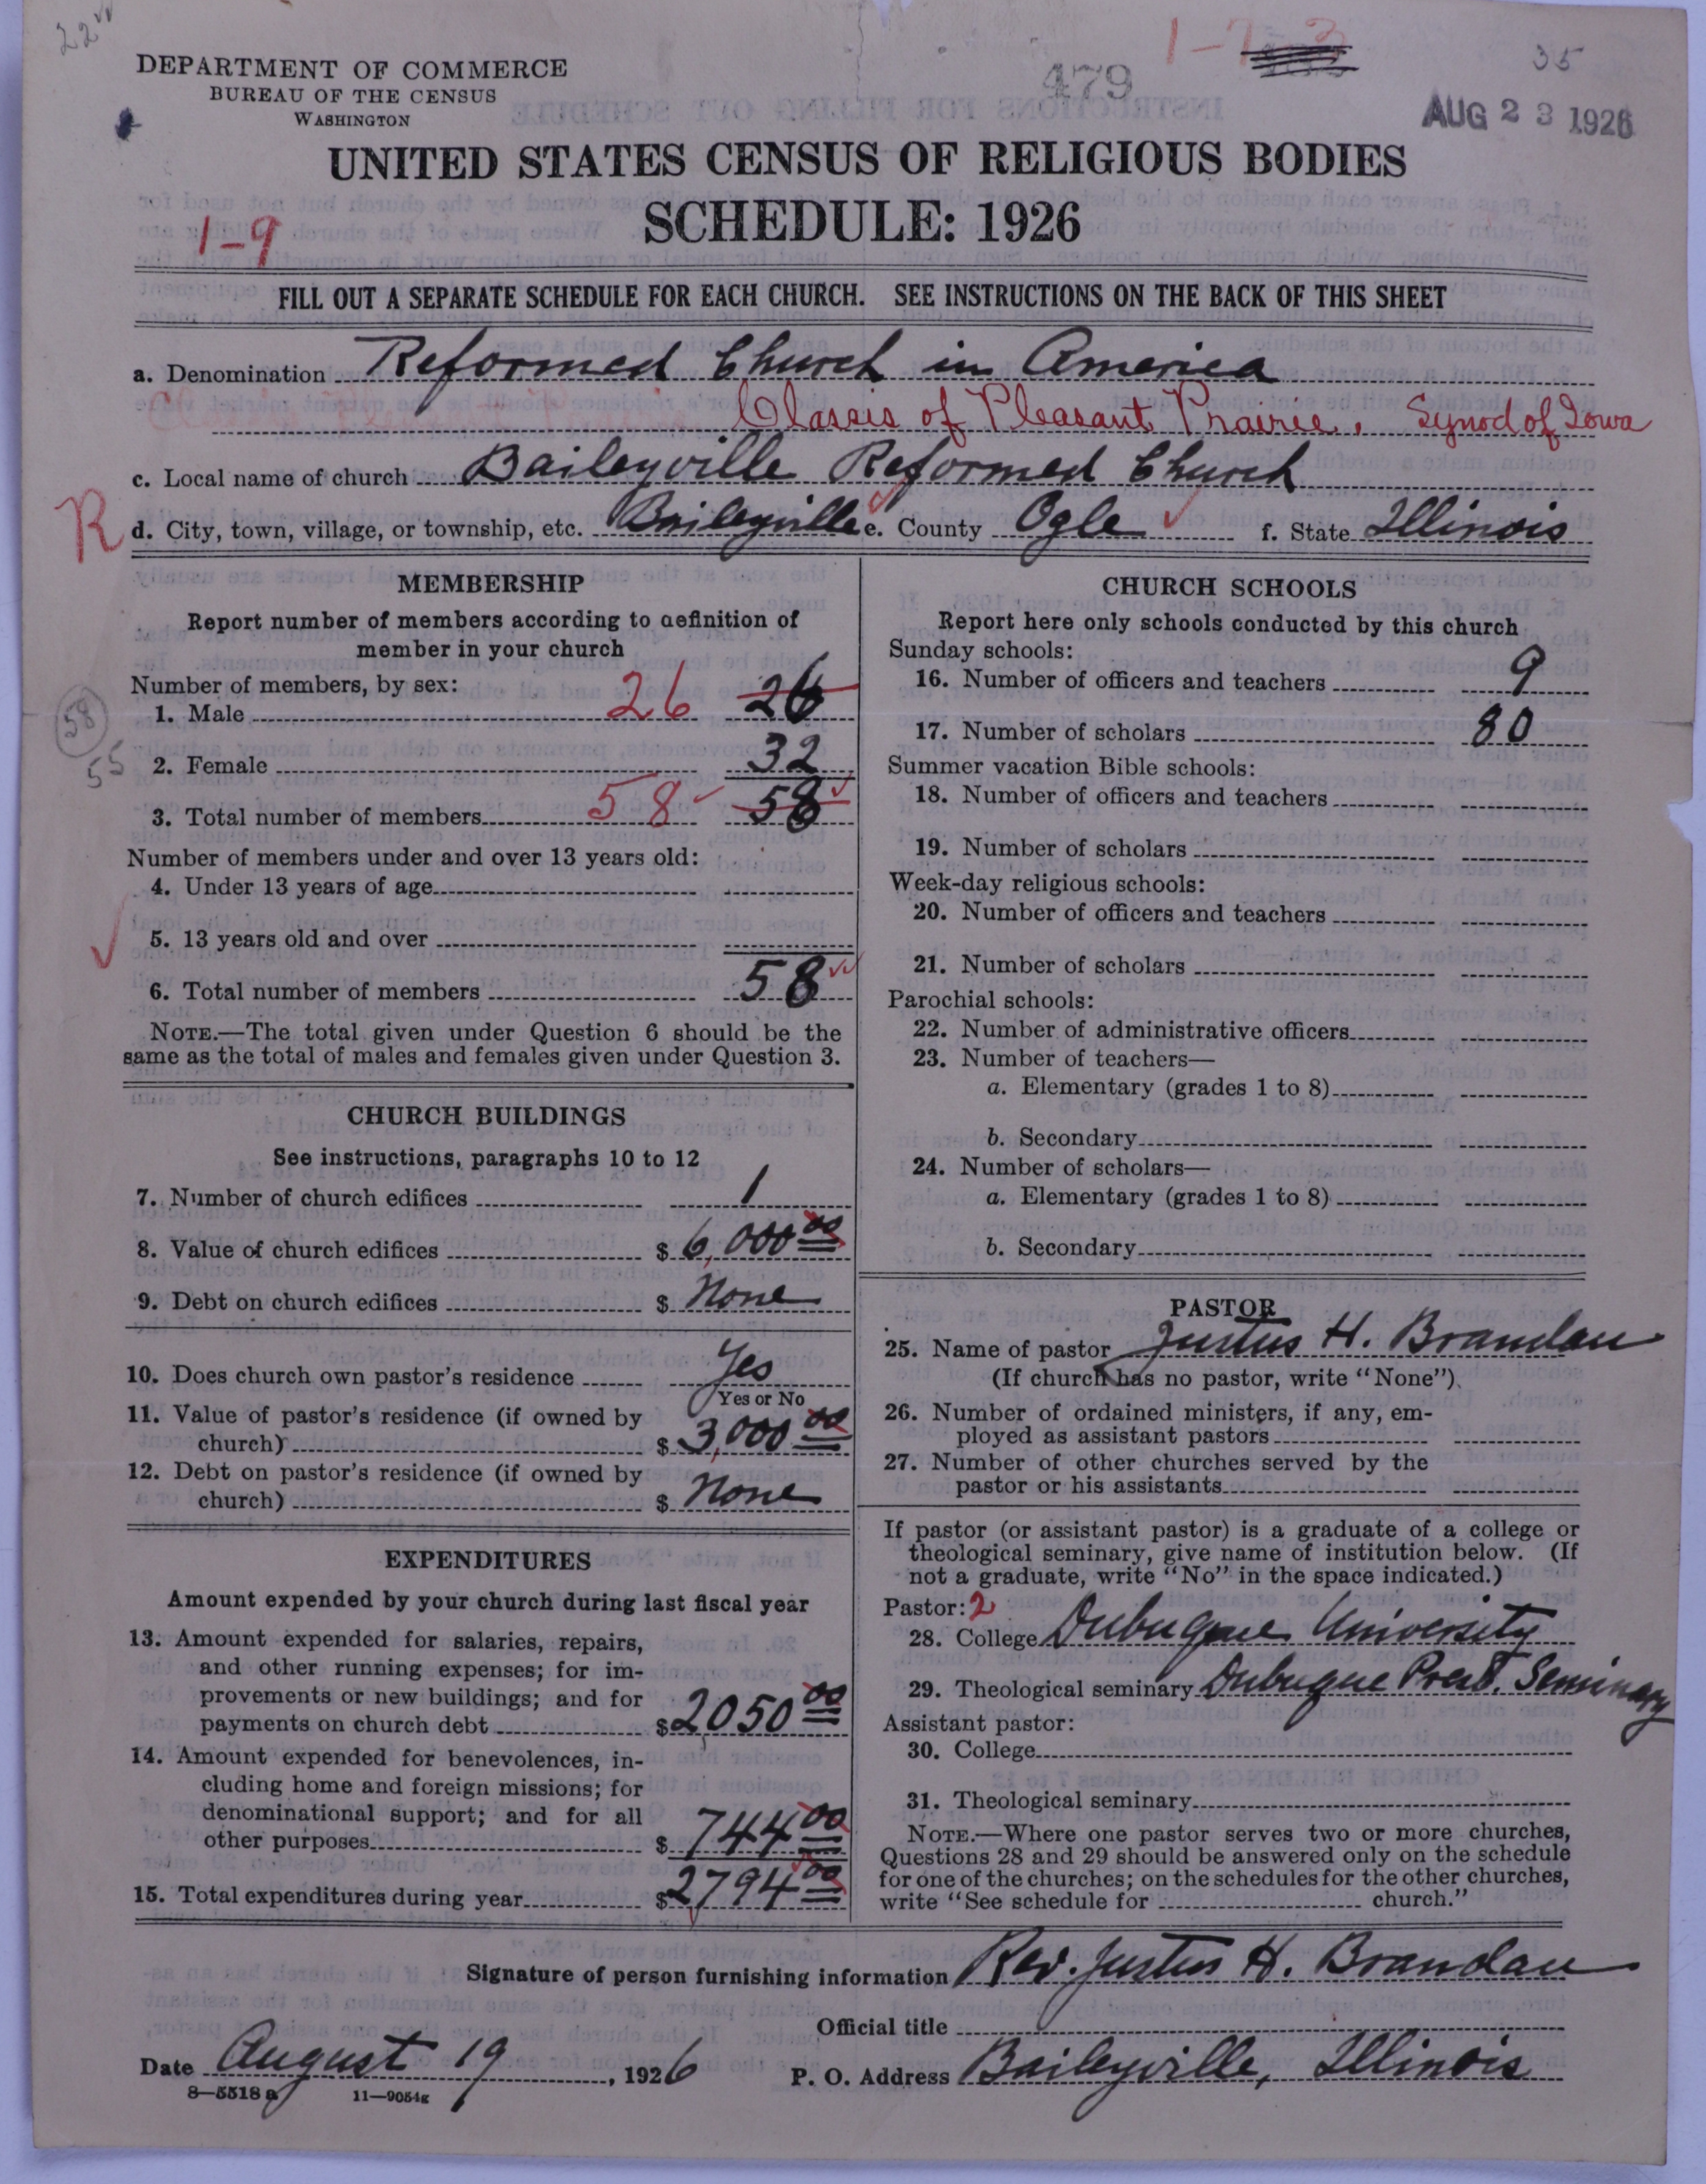 22
1-7-3
35
479
DEPARTMENT OF COMMERCE
BUREAU OF THE CENSUS
WASHINGTON
AUG 23 1926
UNITED STATES CENSUS OF RELIGIOUS BODIES
SCHEDULE: 1926
1-9
FILL OUT A SEPARATE SCHEDULE FOR EACH CHURCH. SEE INSTRUCTIONS ON THE BACK OF THIS SHEET
a. Denomination Reformed Church in America
Classis of Pleasant Prairie, Synod of Iowa
c. Local name of church Baileyville Reformed Church
R
d. City, town, village, or township, etc. Baileyville e. County Ogle f. State Illinois
MEMBERSHIP
Report number of members according to definition of
member in your church
Number of members, by sex:
1. Male 26 26
58
55
2. Female 32
3. Total number of members 58 58
Number of members under and over 13 years old:
4. Under 13 years of age
5. 13 years old and over
6. Total number of members 58
NOTE.—The total given under Question 6 should be the
same as the total of males and females given under Question 3.
CHURCH BUILDINGS
See instructions, paragraphs 10 to 12
7. Number of church edifices 1
8. Value of church edifices $ 6,000 00
9. Debt on church edifices $ None
10. Does church own pastor's residence Yes
Yes or No
11. Value of pastor's residence (if owned by
church) $ 3,000 00
12. Debt on pastor's residence (if owned by
church) $ None
EXPENDITURES
Amount expended by your church during last fiscal year
13. Amount expended for salaries, repairs,
and other running expenses; for im-
provements or new buildings; and for
payments on church debt $ 2050 00
14. Amount expended for benevolences, in-
cluding home and foreign missions; for
denominational support; and for all
other purposes $ 744 00
15. Total expenditures during year $ 2794 00
CHURCH SCHOOLS
Report here only schools conducted by this church
Sunday schools:
16. Number of officers and teachers 9
17. Number of scholars 80
Summer vacation Bible schools:
18. Number of officers and teachers
19. Number of scholars
Week-day religious schools:
20. Number of officers and teachers
21. Number of scholars
Parochial schools:
22. Number of administrative officers
23. Number of teachers—
a. Elementary (grades 1 to 8)
b. Secondary
24. Number of scholars—
a. Elementary (grades 1 to 8)
b. Secondary
PASTOR
25. Name of pastor Justus H. Brandau
(If church has no pastor, write "None")
26. Number of ordained ministers, if any, em-
ployed as assistant pastors
27. Number of other churches served by the
pastor or his assistants
If pastor (or assistant pastor) is a graduate of a college or
theological seminary, give name of institution below. (If
not a graduate, write "No" in the space indicated.)
Pastor: 2
28. College Dubuque University
29. Theological seminary Dubuque Presb. Seminary
Assistant pastor:
30. College
31. Theological seminary
NOTE.—Where one pastor serves two or more churches,
Questions 28 and 29 should be answered only on the schedule
for one of the churches; on the schedules for the other churches,
write "See schedule for church."
Signature of person furnishing information Rev. Justus H. Brandau
Official title
Date August 19, 1926 P. O. Address Baileyville, Illinois
8—5518a 11—9054g